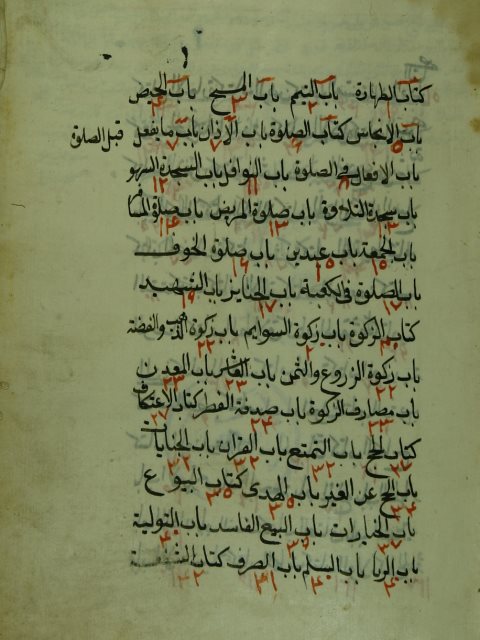 كتاب الطهارة باب التيمم باب المسح باب الحيض
باب الانجاس كتاب الصلوة باب الاذان باب ما يفعل قبل الصلوة
باب الافعال في الصلوة باب النوافل باب السجدة السهو
باب سجدة التلاوة باب صلوة المريض باب صلوة المسافر
باب الجمعة باب عيدين باب صلوة الخوف
باب الصلوة في الكعبة باب الجنايز باب الشهيد
كتاب الزكوة باب زكوة السوايم باب زكوة الذهب والفضة
باب زكوة الزروع والثمن باب العاشر باب المعدن
باب مصارف الزكوة باب صدقة الفطر كتاب الاعتكاف
كتاب الحج باب التمتع باب القران باب الجنايات
باب الحج عن الغير باب الهدى كتاب البيوع
باب الخيارات باب البيع الفاسد باب التولية
باب الربا باب السلم باب الصرف كتاب الشفعة